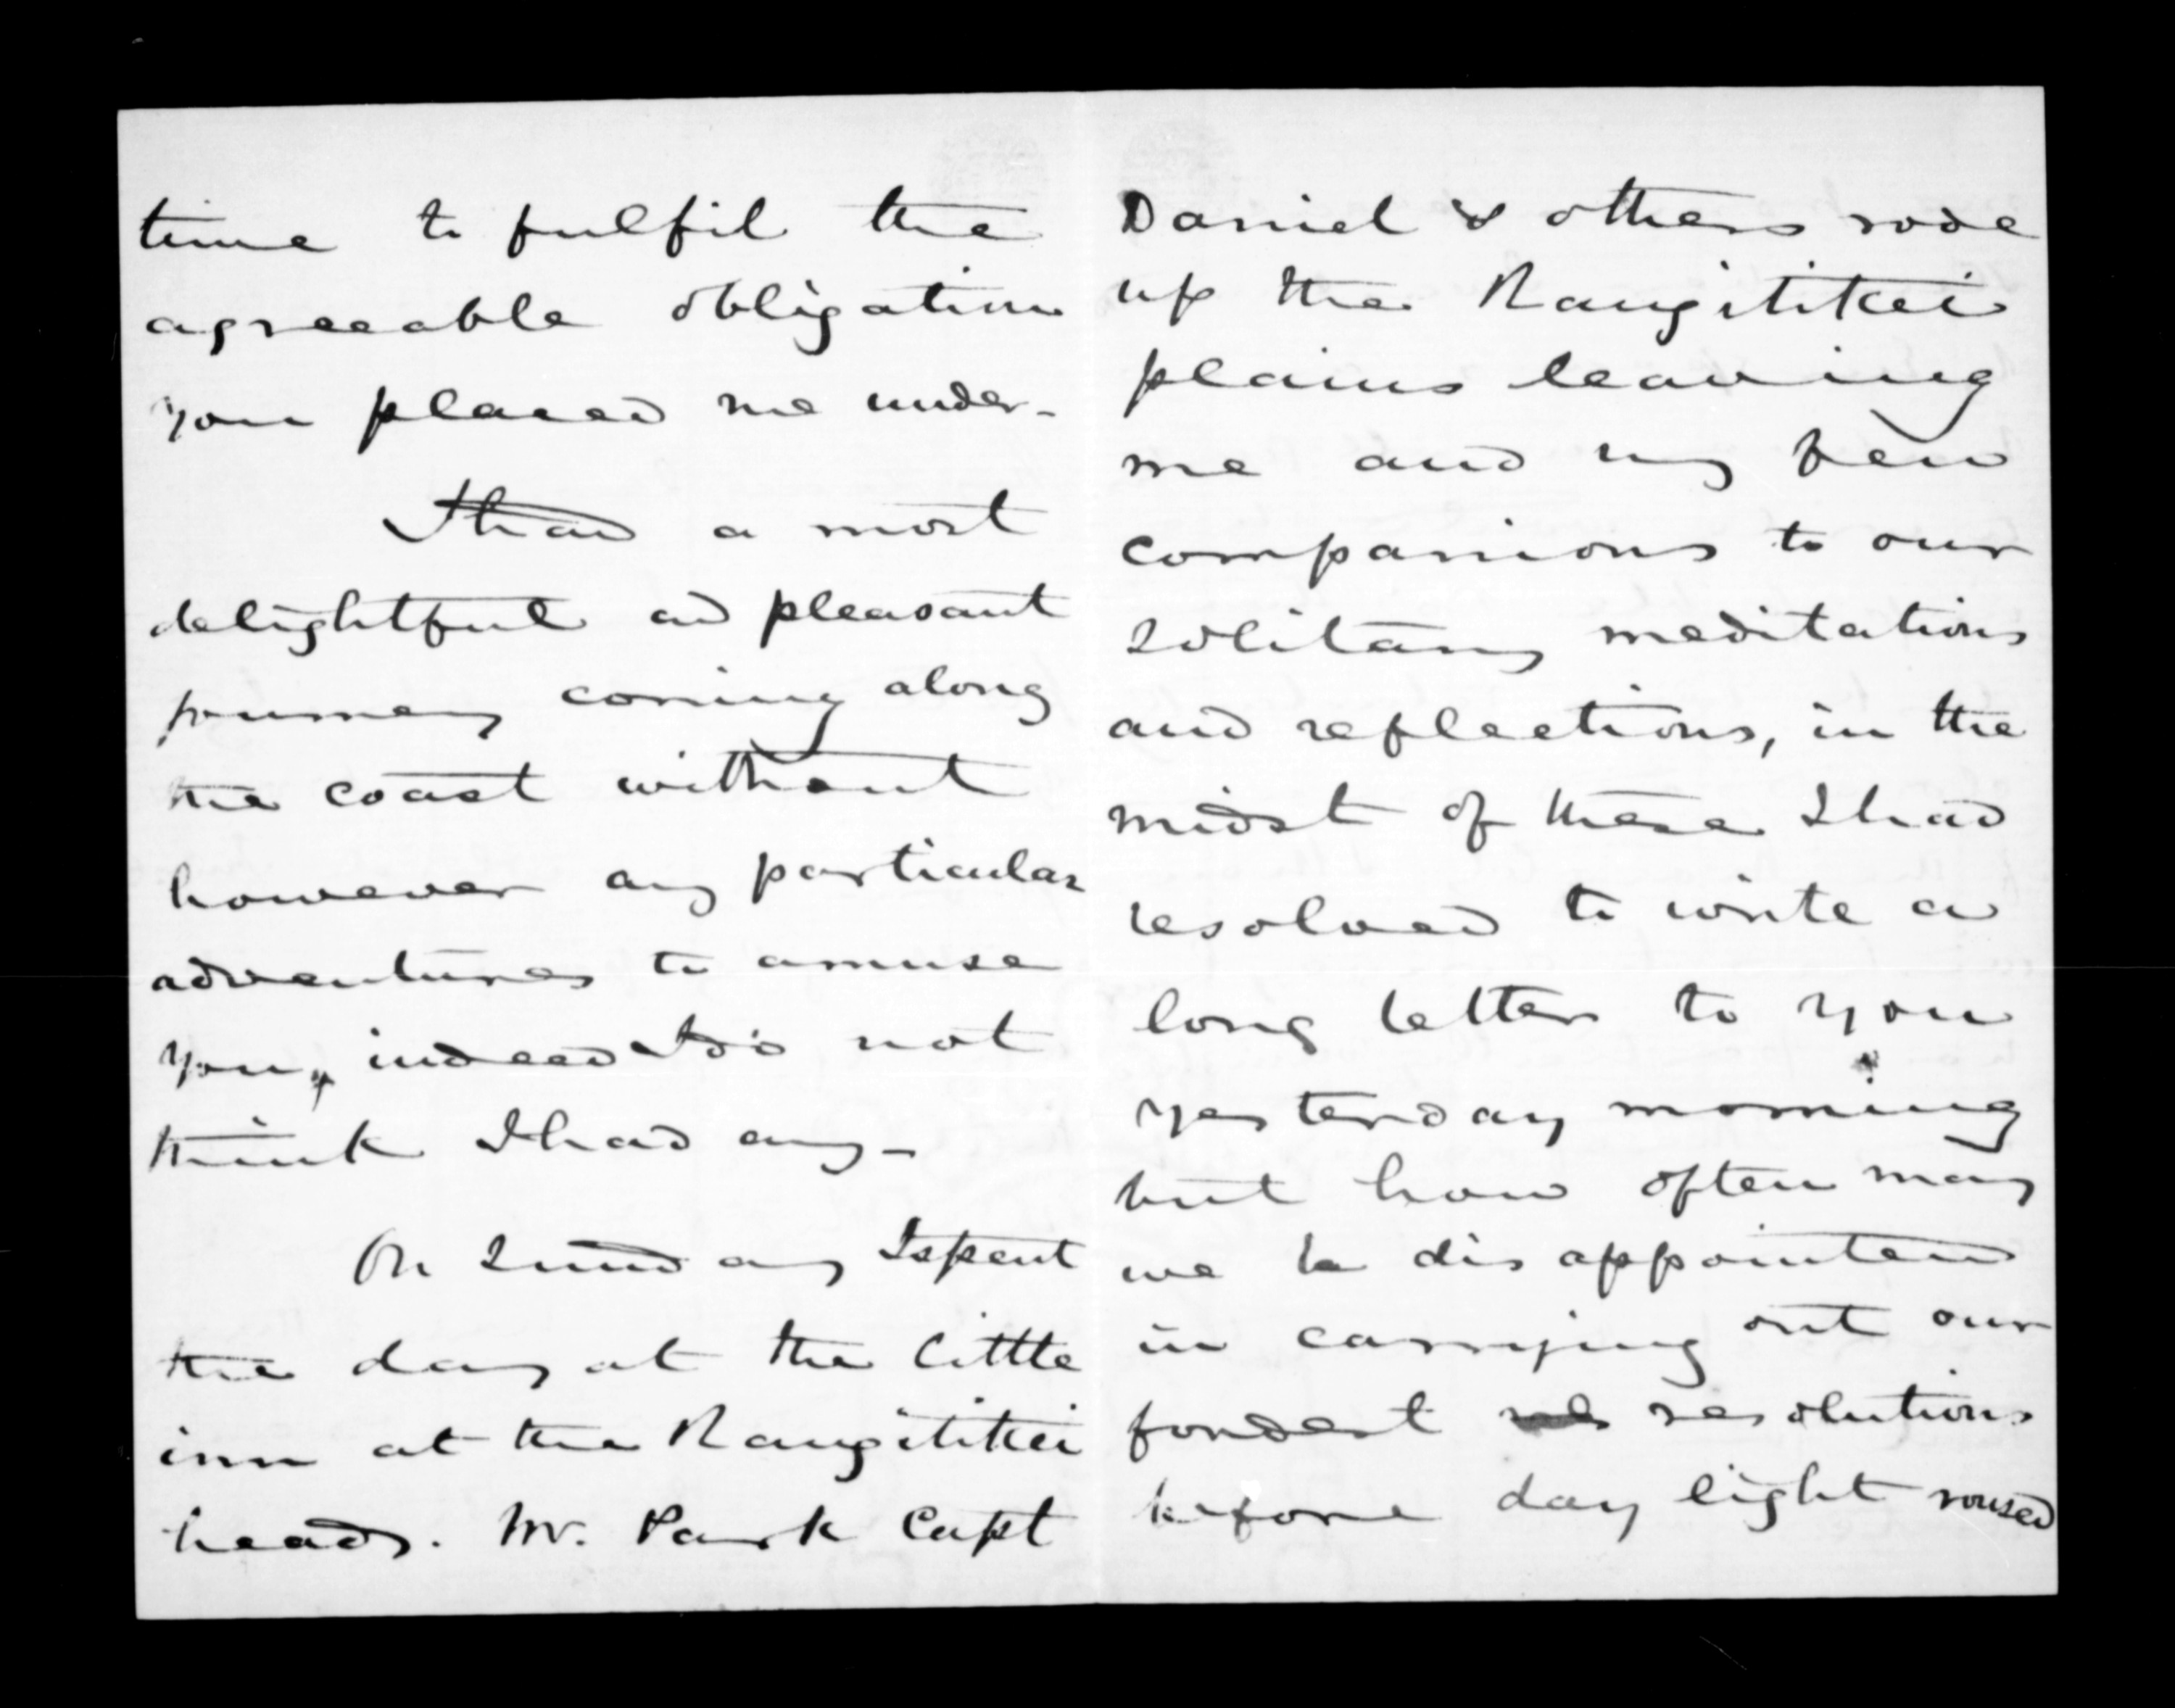 time to fulfil the
agreeable obligation
you placed me under -
I had a most
delightful and pleasant
journey coming along
the coast without
however any particular
adventures to amuse
you, indeed I do not
think I had any -
On Sunday I spent
the day at the little
inn at the Rangitikei
heads. Mr. Park Capt
Daniel & others rode
up the Rangitikei
plains leaving
me and my few
companions to our
solitary meditations
and reflections, in the
midst of these I had
resolved to write a
long letter to you
yesterday morning
but how often may
we be disappointed
in carrying out our
fondest resolutions
before day light roused